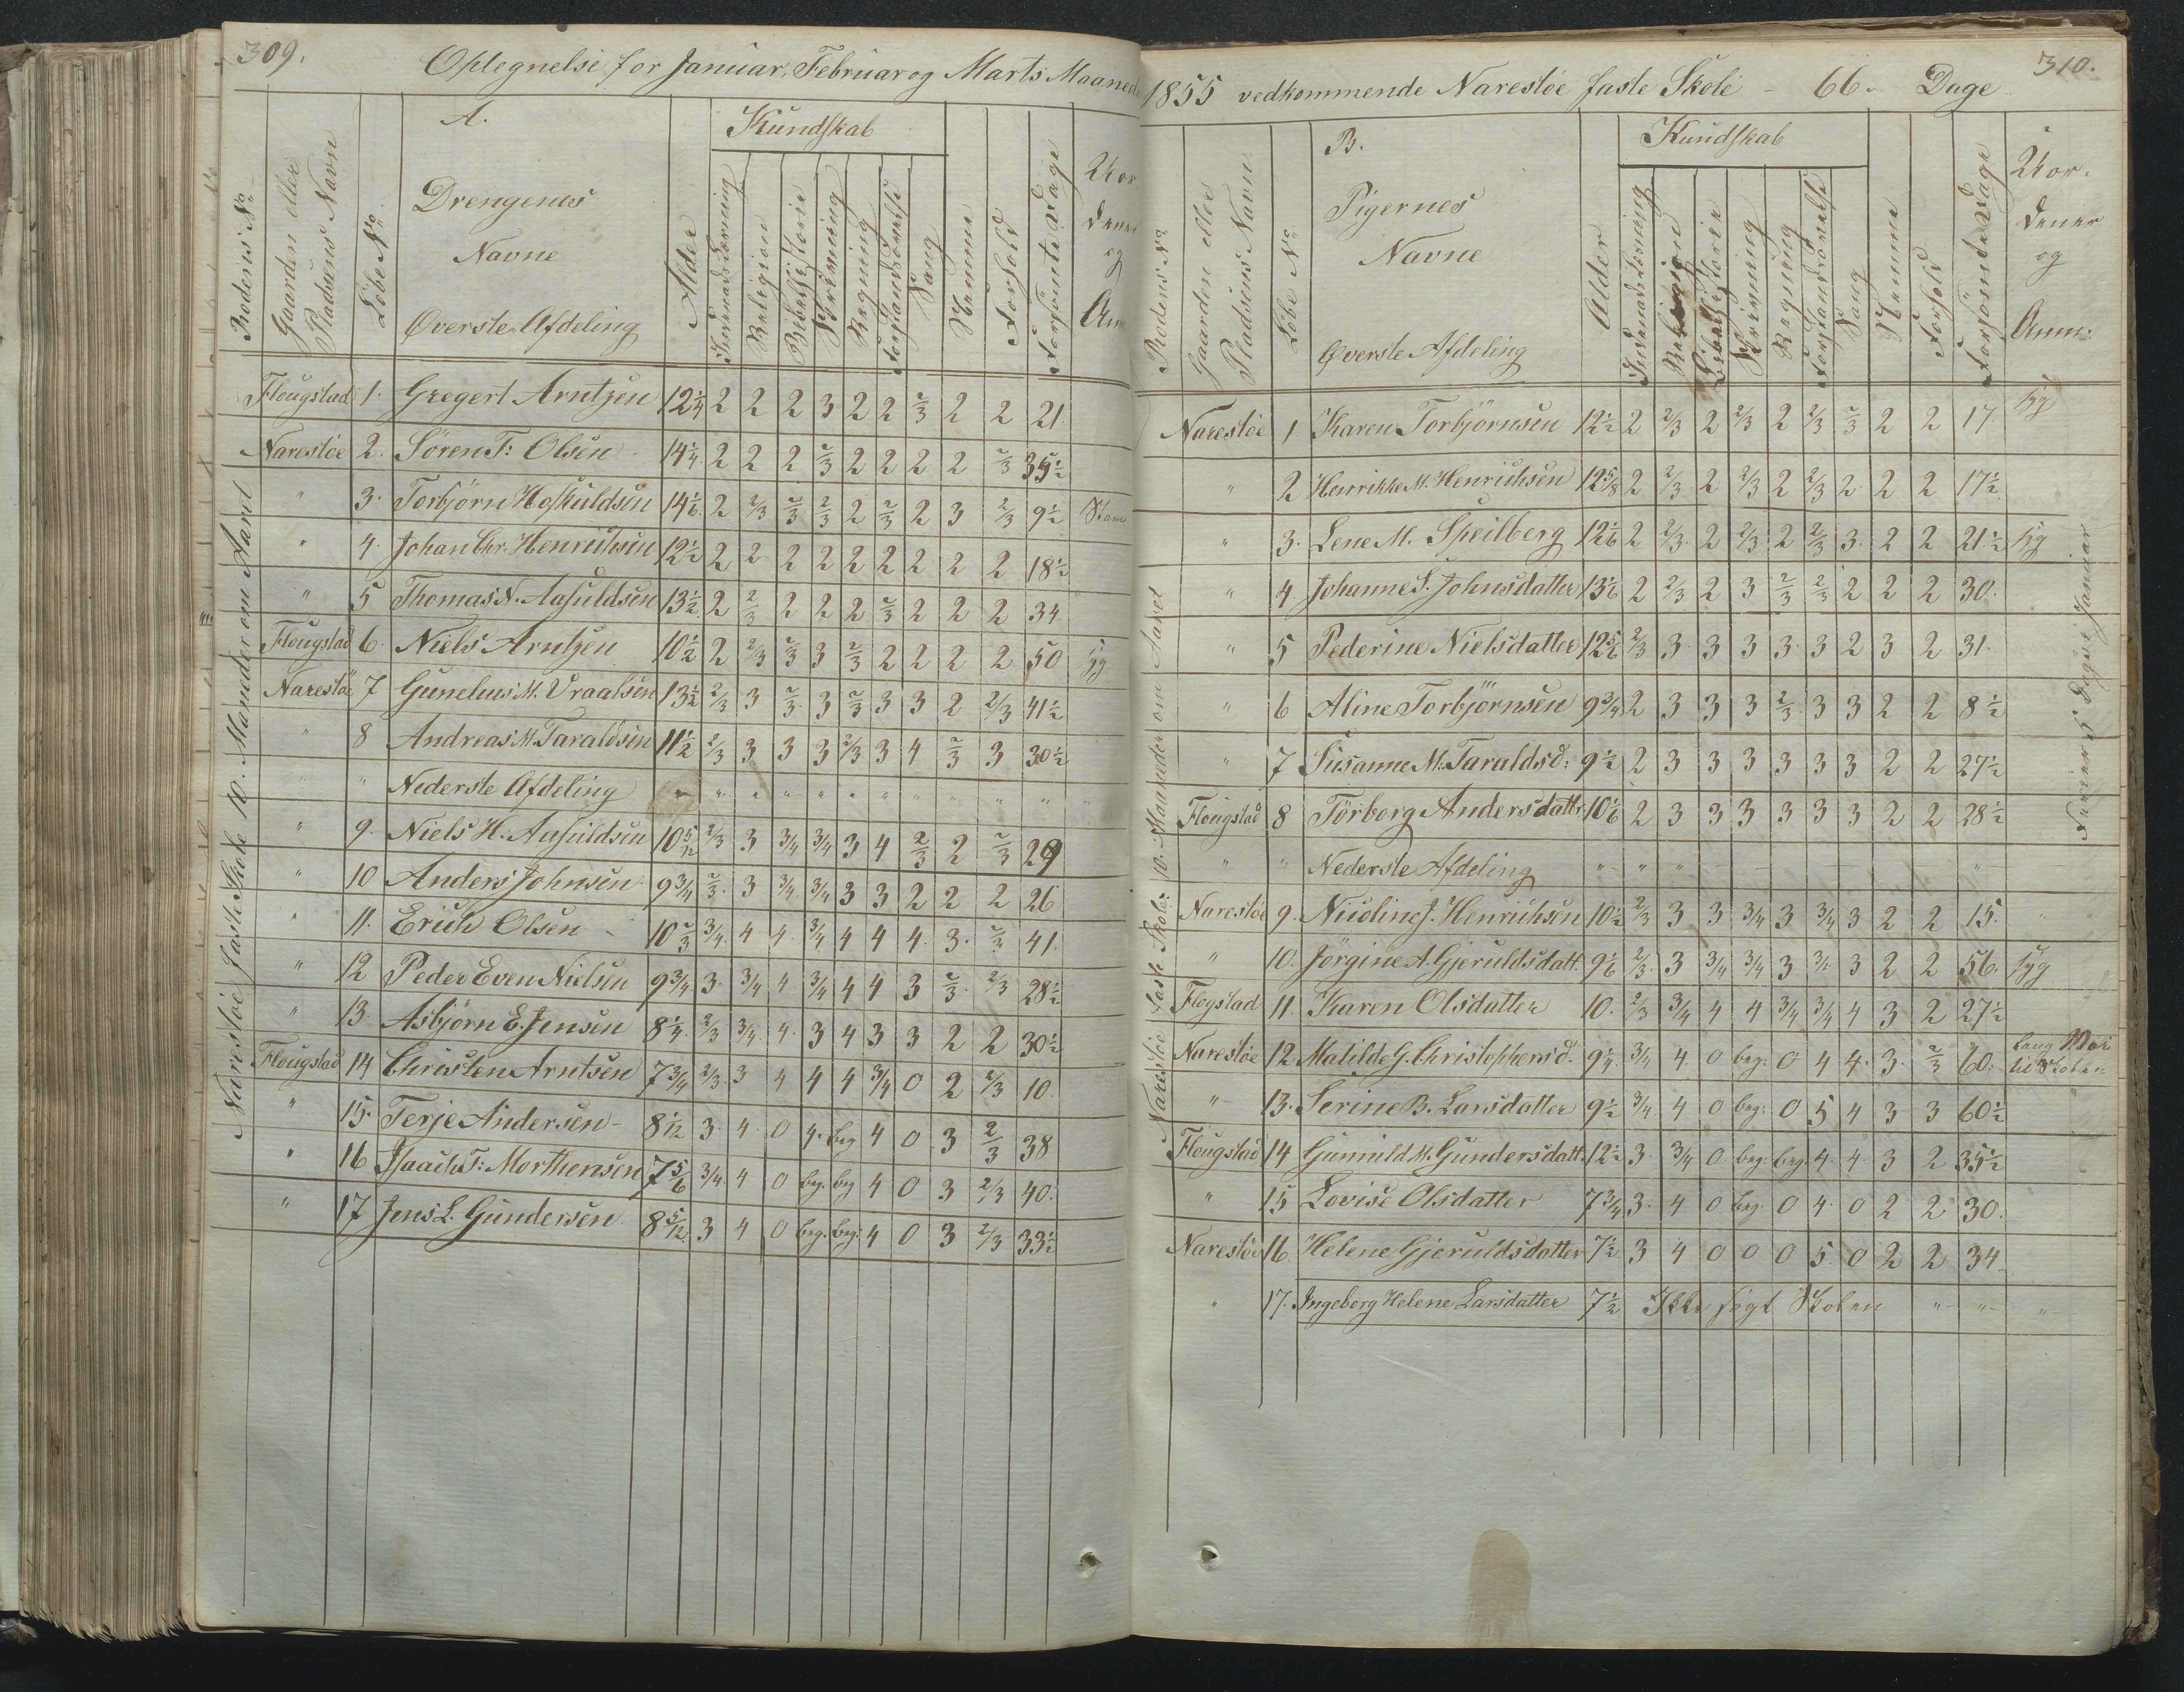 309.
Optegnelse for Januar, Februar og Marts Maaned
Rodens No
Gaarden eller Pladsens Navn
Löbe No
A.
Drengenes
Navne
Øverste Afdeling
Alder
Kundskab
Indenadslæsning
Religion
Bibelhistorie
Skrivning
Regning
Forstandsövelse
Sang
Nemme
Forhold
Forsömte Dage
og
Narestöe faste Skole 10. Maander om Aaret
Flougstad 1. Gregert Arntzen 12 1/4 2 2 2 3 2 2 2/3 2 2 21
Narestöe 2. Sören F: Olsen 14 1/4 2 2 2 2/3 2 2 2 2 2/3 35 1/2
" 3. Torbjörn Hofkuldsen 14 1/6 2 2/3 2/3 2/3 2 2/3 2 3 2/3 9 1/2
" 4. Johan Chr. Henrichsen 12 1/2 2 2 2 2 2 2 2 2 2 18 1/2
" 5 Thomas N. Aasuldsen 13 1/2 2 2/3 2 2 2 2/3 2 2 2 34
Flougstad 6. Niels Arntzen 10 1/2 2 2/3 2/3 3 2/3 2 2 2 2 50 syg
Narestöe 7 Gunelius M. Vraalsen 13 1/2 2/3 3 2/3 3 2/3 3 3 2 2/3 41 1/2
" 8 Andreas M. Taraldsen 11 1/2 2/3 3 3 3 2/3 3 4 2/3 3 30 1/2
" " Nederste Afdeling " " " " " " " " " " "
" 9. Niels H. Aasuldsen 10 5/12 2/3 3 3/4 3/4 3 4 2/3 2 2/3 29
" 10 Anders Johnsen 9 3/4 2/3 3 3/4 3/4 3 3 2 2 2 26
" 11. Erich Olsen 10 2/3 3/4 4 4 3/4 4 4 4 3 2/3 41
" 12 Peder Even Nielsen 9 3/4 3 3/4 4 3/4 4 4 3 2/3 2/3 28 1/2
" 13 Asbjörn E. Jensen 8 1/4 2/3 3/4 4 3 4 3 3 2 2 30 1/2
Flougstad 14 Christen Arntsen 7 3/4 2/3 3 4 4 4 3/4 0 2 2/3 10
" 15. Terje Andersen 8 1/12 3 4 0 4 beg 4 0 3 2/3 38
" 16 Isaach T: Morthensen 7 5/6 3/4 4 0 beg. beg 4 0 3 2/3 40
" 17 Jens L. Gundersen 8 5/12 3 4 0 beg. beg. 4 0 3 2/3 33 1/2
310.
1855 vedkommende Narestöe faste Skole - 66. Dage
Rodens No
Gaarden eller Pladsens Navn
Löbe No
B.
Pigernes
Navne
Øverste Afdeling
Alder
Kundskab
Indenadslæsning
Religion
Bibelhistorie
Skrivning
Regning
Forstandsövelse
Sang
Nemme
Forhold
Forsömte Dage
og
Anm:
Narestöe faste Skole: 10 Maander om Aaret
Narestöe 1 Karen Torbjörnsen 12 1/2 2 2/3 2 2/3 2 2/3 2/3 2 2 17 syg
" 2 Henrikke M. Henrichsen 12 5/8 2 2/3 2 2/3 2 2/3 2 2 2 17 1/2
" 3. Lene M. Speilberg 12 1/6 2 2/3 2 2/3 2 2/3 3 2 2 21 1/2 syg
" 4 Johanne S. Johnsdatter 13 1/6 2 2/3 2 3 2/3 2/3 2 2 2 30.
" 5 Pederine Nielsdatter 12 5/6 2/3 3 3 3 3 3 2 3 2 31.
" 6 Aline Torbjörnsen 9 3/4 2 3 3 3 2/3 3 3 2 2 8 1/2
" 7 Susanne M. Taraldsd: 9 1/2 2 3 3 3 3 3 3 2 2 27 1/2
Flougstad 8 Törborg Andersdattr 10 1/6 2 3 3 3 3 3 3 2 2 28 1/2
" " Nederste Afdeling " " "
Narestöe 9. Nicoline J. Henrichsen 10 1/2 2/3 3 3 3/4 3 3/4 3 2 2 15.
" 10. Jörgine A. Gjeruldsdatt. 9 1/6 2/3 3 3/4 3/4 3 3/4 3 2 2 56. syg
Flogstad 11. Karen Olsdatter 10. 2/3 3/4 4 4 3/4 3/4 4 3 2 27 1/2
Narestöe 12 Matilde G. Christophersd. 9 1/4 3/4 4 0 beg: 0 4 4 3 2/3 60. lang Vei til Skolen
" 13. Serine B. Larsdatter 9 1/2 3/4 4 0 beg: 0 5 4 3 3 60 1/2
Flougstad 14 Gunnild M. Gundersdatt. 12 1/2 3 3/4 0 beg. beg. 4 4 3 2 35 1/2
" 15 Lovise Olsdatter 7 3/4 3 4 0 beg. 0 4 0 2 2 30.
Narestöe 16. Helene Gjeruldsdatter 7 1/2 3 4 0 0 0 5 0 2 2 34
" 17. Ingeborg Helene Larsdatter 7 1/2 Ikke søgt Skolen " " "
Ferier 5 Dage i Januar